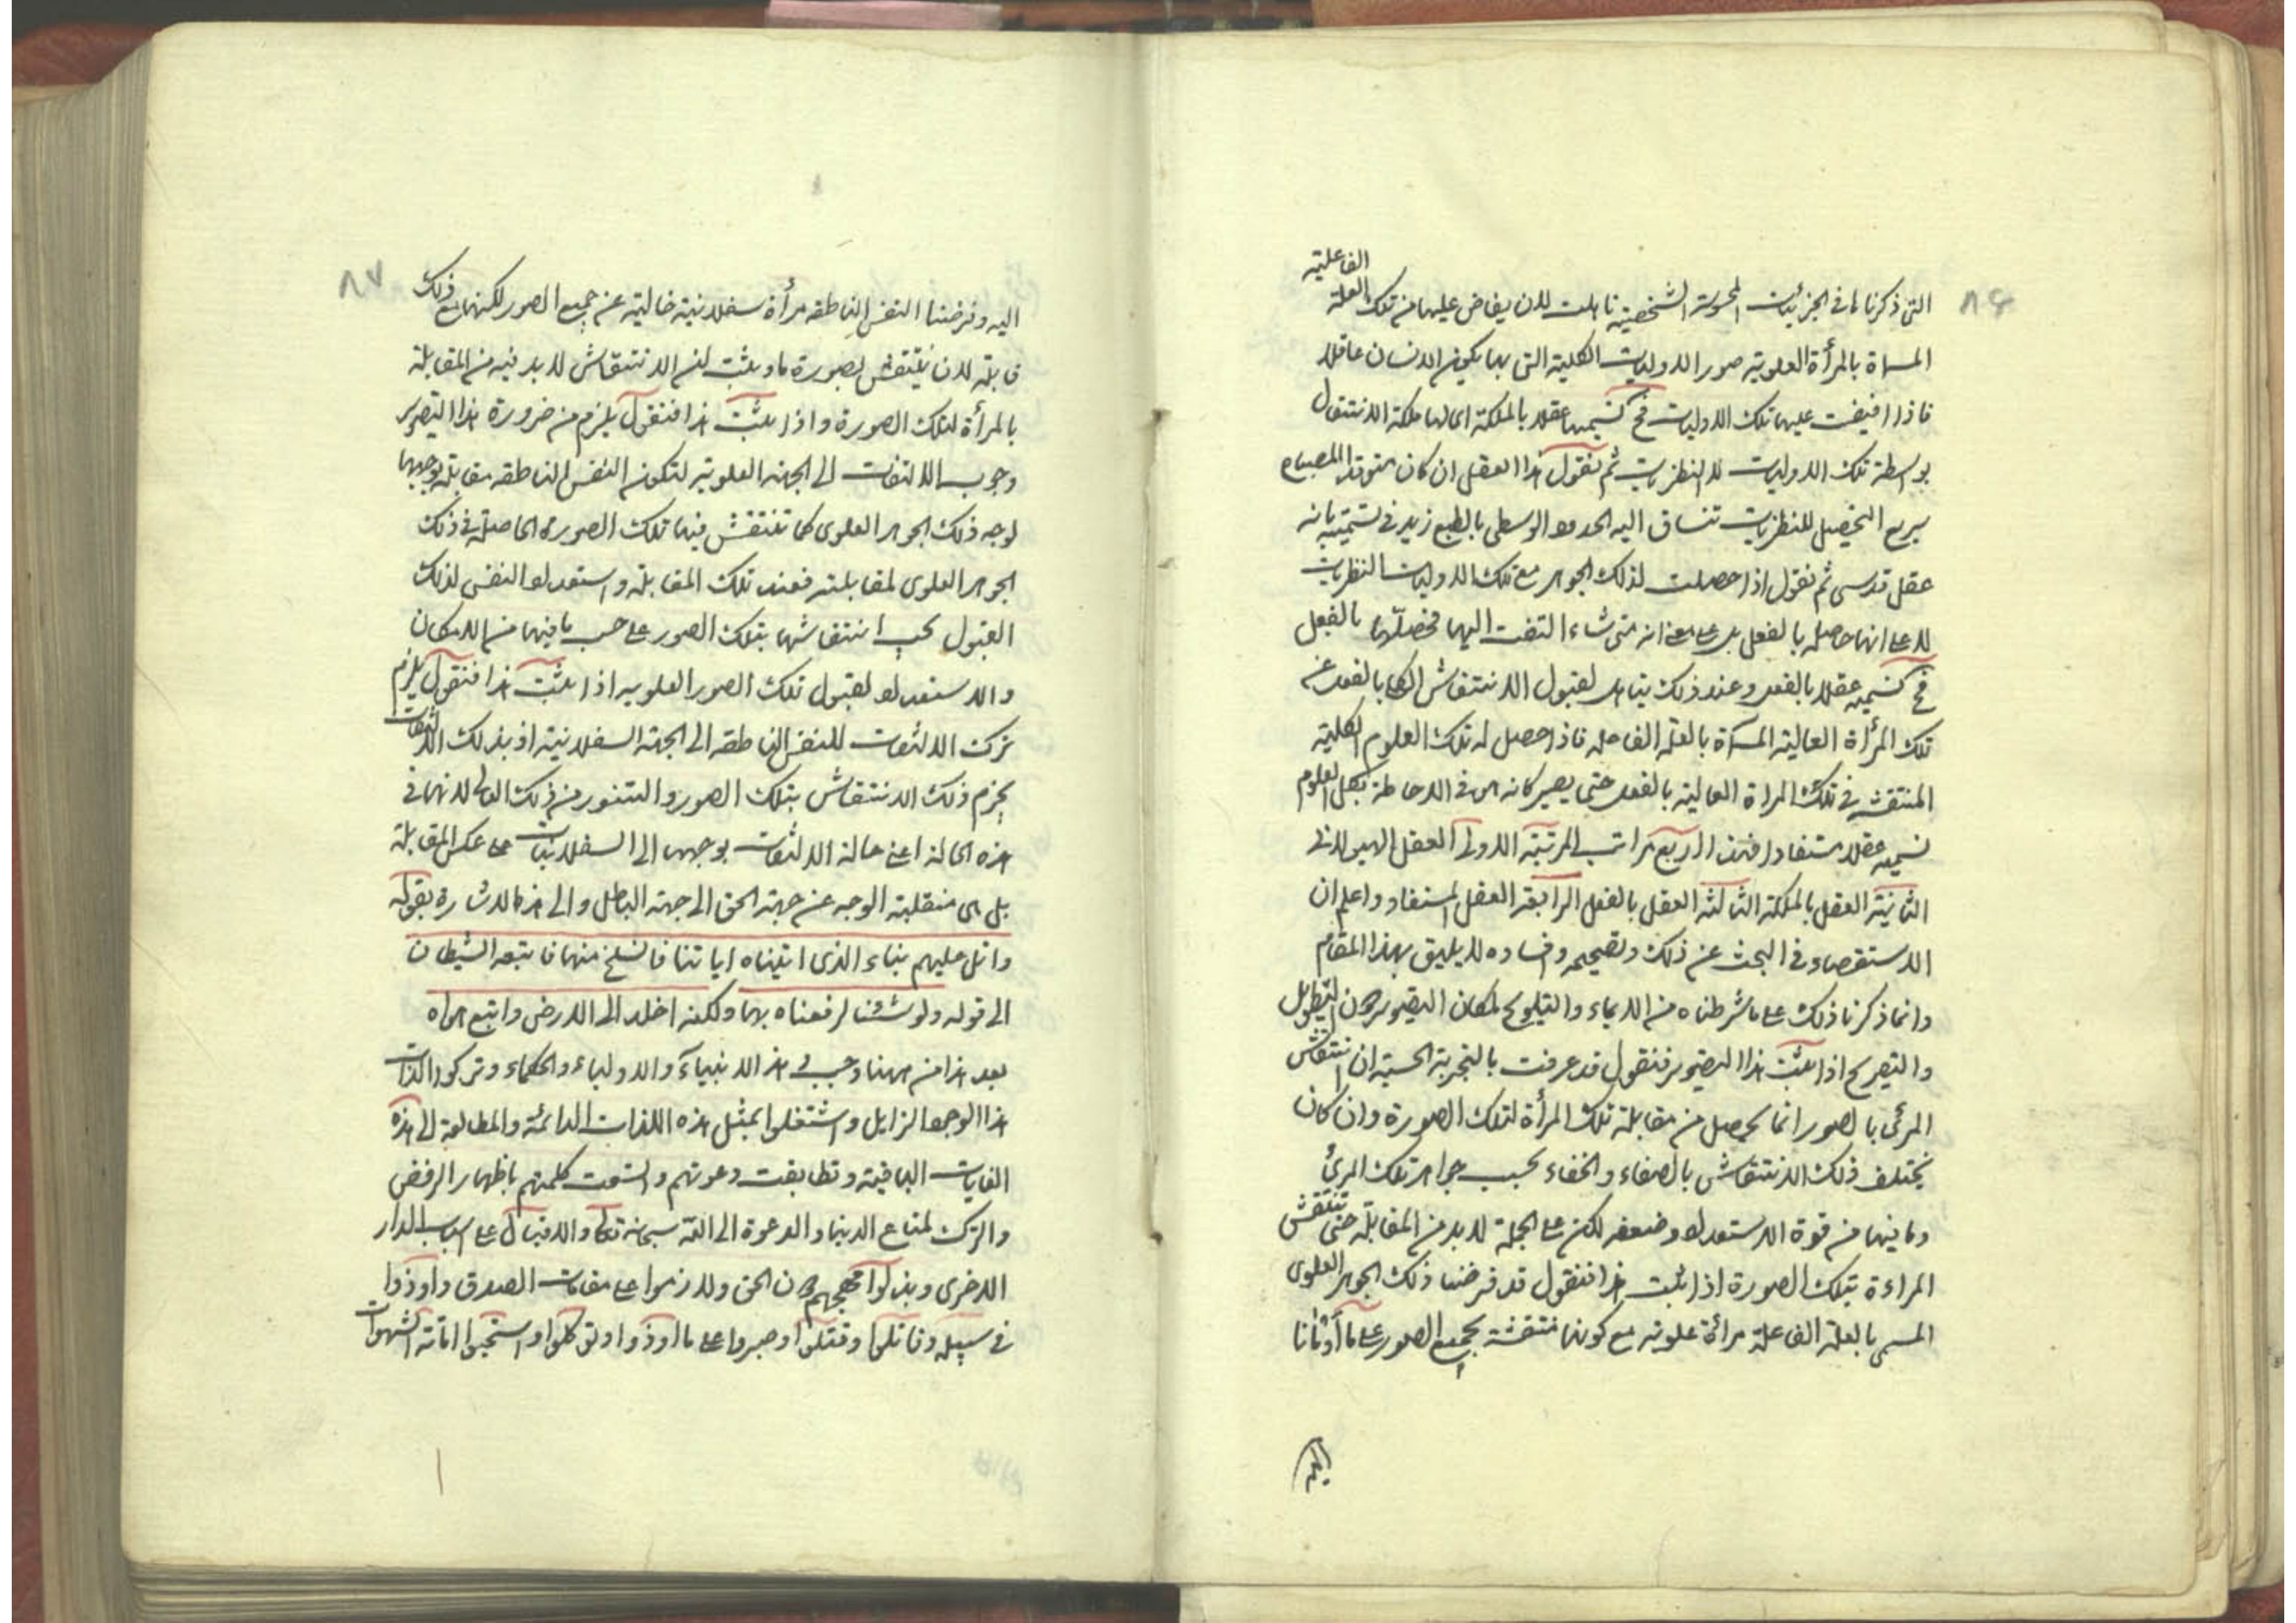 ٨٤
الفاعلية
التى ذكرناها فى الجزئيات المحسوسة الشخصية تاهلت لان يفاض عليها من تلك العلة
المسماة بالمرأة العلوية صور الاوليات الكلية التى بها يكون الانسان عاقلا
فاذا افيضت عليها تلك الاوليات فح نسيمها عقلا بالملكة اى لها ملكة الانتقال
بواسطة تلك الاوليات للنظريات ثم نقول هذا العقل ان كان متوقد المصباح
سريع التحصيل للنظريات تنساق اليه الحدود الوسطى بالطبع زيد فى تسميته بانه
عقل قدسى ثم نقول اذا حصلت لذلك الجوهر مع تلك الاوليات النظريات
لا على انها حاصلة بالفعل بل على معنى انه متى شاء التفت اليها محصلها بالفعل
فح نسميه عقلا بالفعل وعند ذلك يتاهل لقبول الانتقاش الكلى بالفعل عن
تلك المرأة العالية المسماة بالعلة الفاعلة فاذا حصل له تلك العلوم الكلية
المنتقشة فى تلك المراة العالية بالفعل حتى يصير كانه هى فى الاحاطة بكل العلوم
نسميه عقلا مستفادا فهذه اربع مراتب المرتبة الاولى العقل الهيولانى
الثانية العقل بالملكة الثالثة العقل بالفعل الرابعة العقل المستفاد واعلم ان
الاستقصاء فى البحث عن ذلك وتصحيحه وفساده لا يليق بهذا المقام
وانما ذكرنا ذلك على ما شرطناه من الايماء والتلويح لمكان التصوير دون التطويل
والتصريح اذا ثبت هذا التصوير فنقول قد عرفت بالتجربة الحسية ان انتقاش
المرئى بالصور انما يحصل من مقابلة تلك المرأة لتلك الصورة وان كان
يختلف ذلك الانتقاش بالصفاء والخفاء بحسب جواهر تلك المرئ
وما فيها من قوة الاستعداد وضعفه لكن على الجملة لا بد من المقابلة حتى تنتقش
المراءة بتلك الصورة اذا ثبت هذا فنقول قد فرضنا ذلك الجوهر العلوى
المسمى بالعلة الفاعلة مرائة علوية مع كونها منتقشة بجميع الصور على ما
٨٧
اليه وفرضنا النفس الناطقه مرأة سفلانية خالية عن جميع الصور لكنها مع ذلك
قابلة لان ينتقش بصورة ما وثبت لنا ان الانتقاش لا بد فيه من المقابلة
بالمرأة لتلك الصورة واذا ثبت هذا فنقول يلزم من ضرورة هذا التصوير
وجوب الالتفات الى الجهة العلوية لتكون النفس الناطقه مقابلة بوجهها
لوجه ذلك الجوهر العلوى كما تنتقش فيها تلك الصورة الحاصلة فى ذلك
الجوهر العلوى لمقابلته فعند تلك المقابلة واستعداد النفس لذلك
القبول يجب انتقاشها بتلك الصور على حسب ما فيها من الامكان
والاستعداد لقبول تلك الصور العلويه اذا ثبت هذا فنقول يلزم
ترك الالتفات للنفس الناطقه الى الجهة السفلانية اذ بذلك الالتفات
يخرم ذلك الانتقاش بتلك الصور والتنور من ذلك العالم لانها فى
هذه الحالة اعنى حالة الالتفات بوجهها الى السفلانيات على عكس المقابلة
بل هى منقلبة الوجه عن جهة الحق الى جهة الباطل والى هذا الاشارة بقوله
واتل عليهم نباء الذى اتيناه اياتنا فانسلخ منها فاتبعه الشيطان
الى قوله ولو شئنا لرفعناه بها ولكنه اخلد الى الارض واتبع هواه
بعد هذا من ههنا وجب هذا الانبياء والاولياء والحكماء وتركوا لذات
هذا الوجه الزايل واشتغلوا بمثل هذه اللذات الدائمة والمطالعة الى هذه
الغايات الباقية وتطابقت دعوتهم واتسقت كلمتهم باظهار الرفض
والترك لمتاع الدنيا والدعوة الى الله سبحانه تعالى والاقبال على اسباب الدار
الاخرى وبذلوا مهجهم دون الحق ولازموا على مقامات الصدق واوذوا
فى سبيله وقاتلوا وقتلوا وصبروا على ما اوذوا وتوكلوا واستحبوا اماتة الشهوات